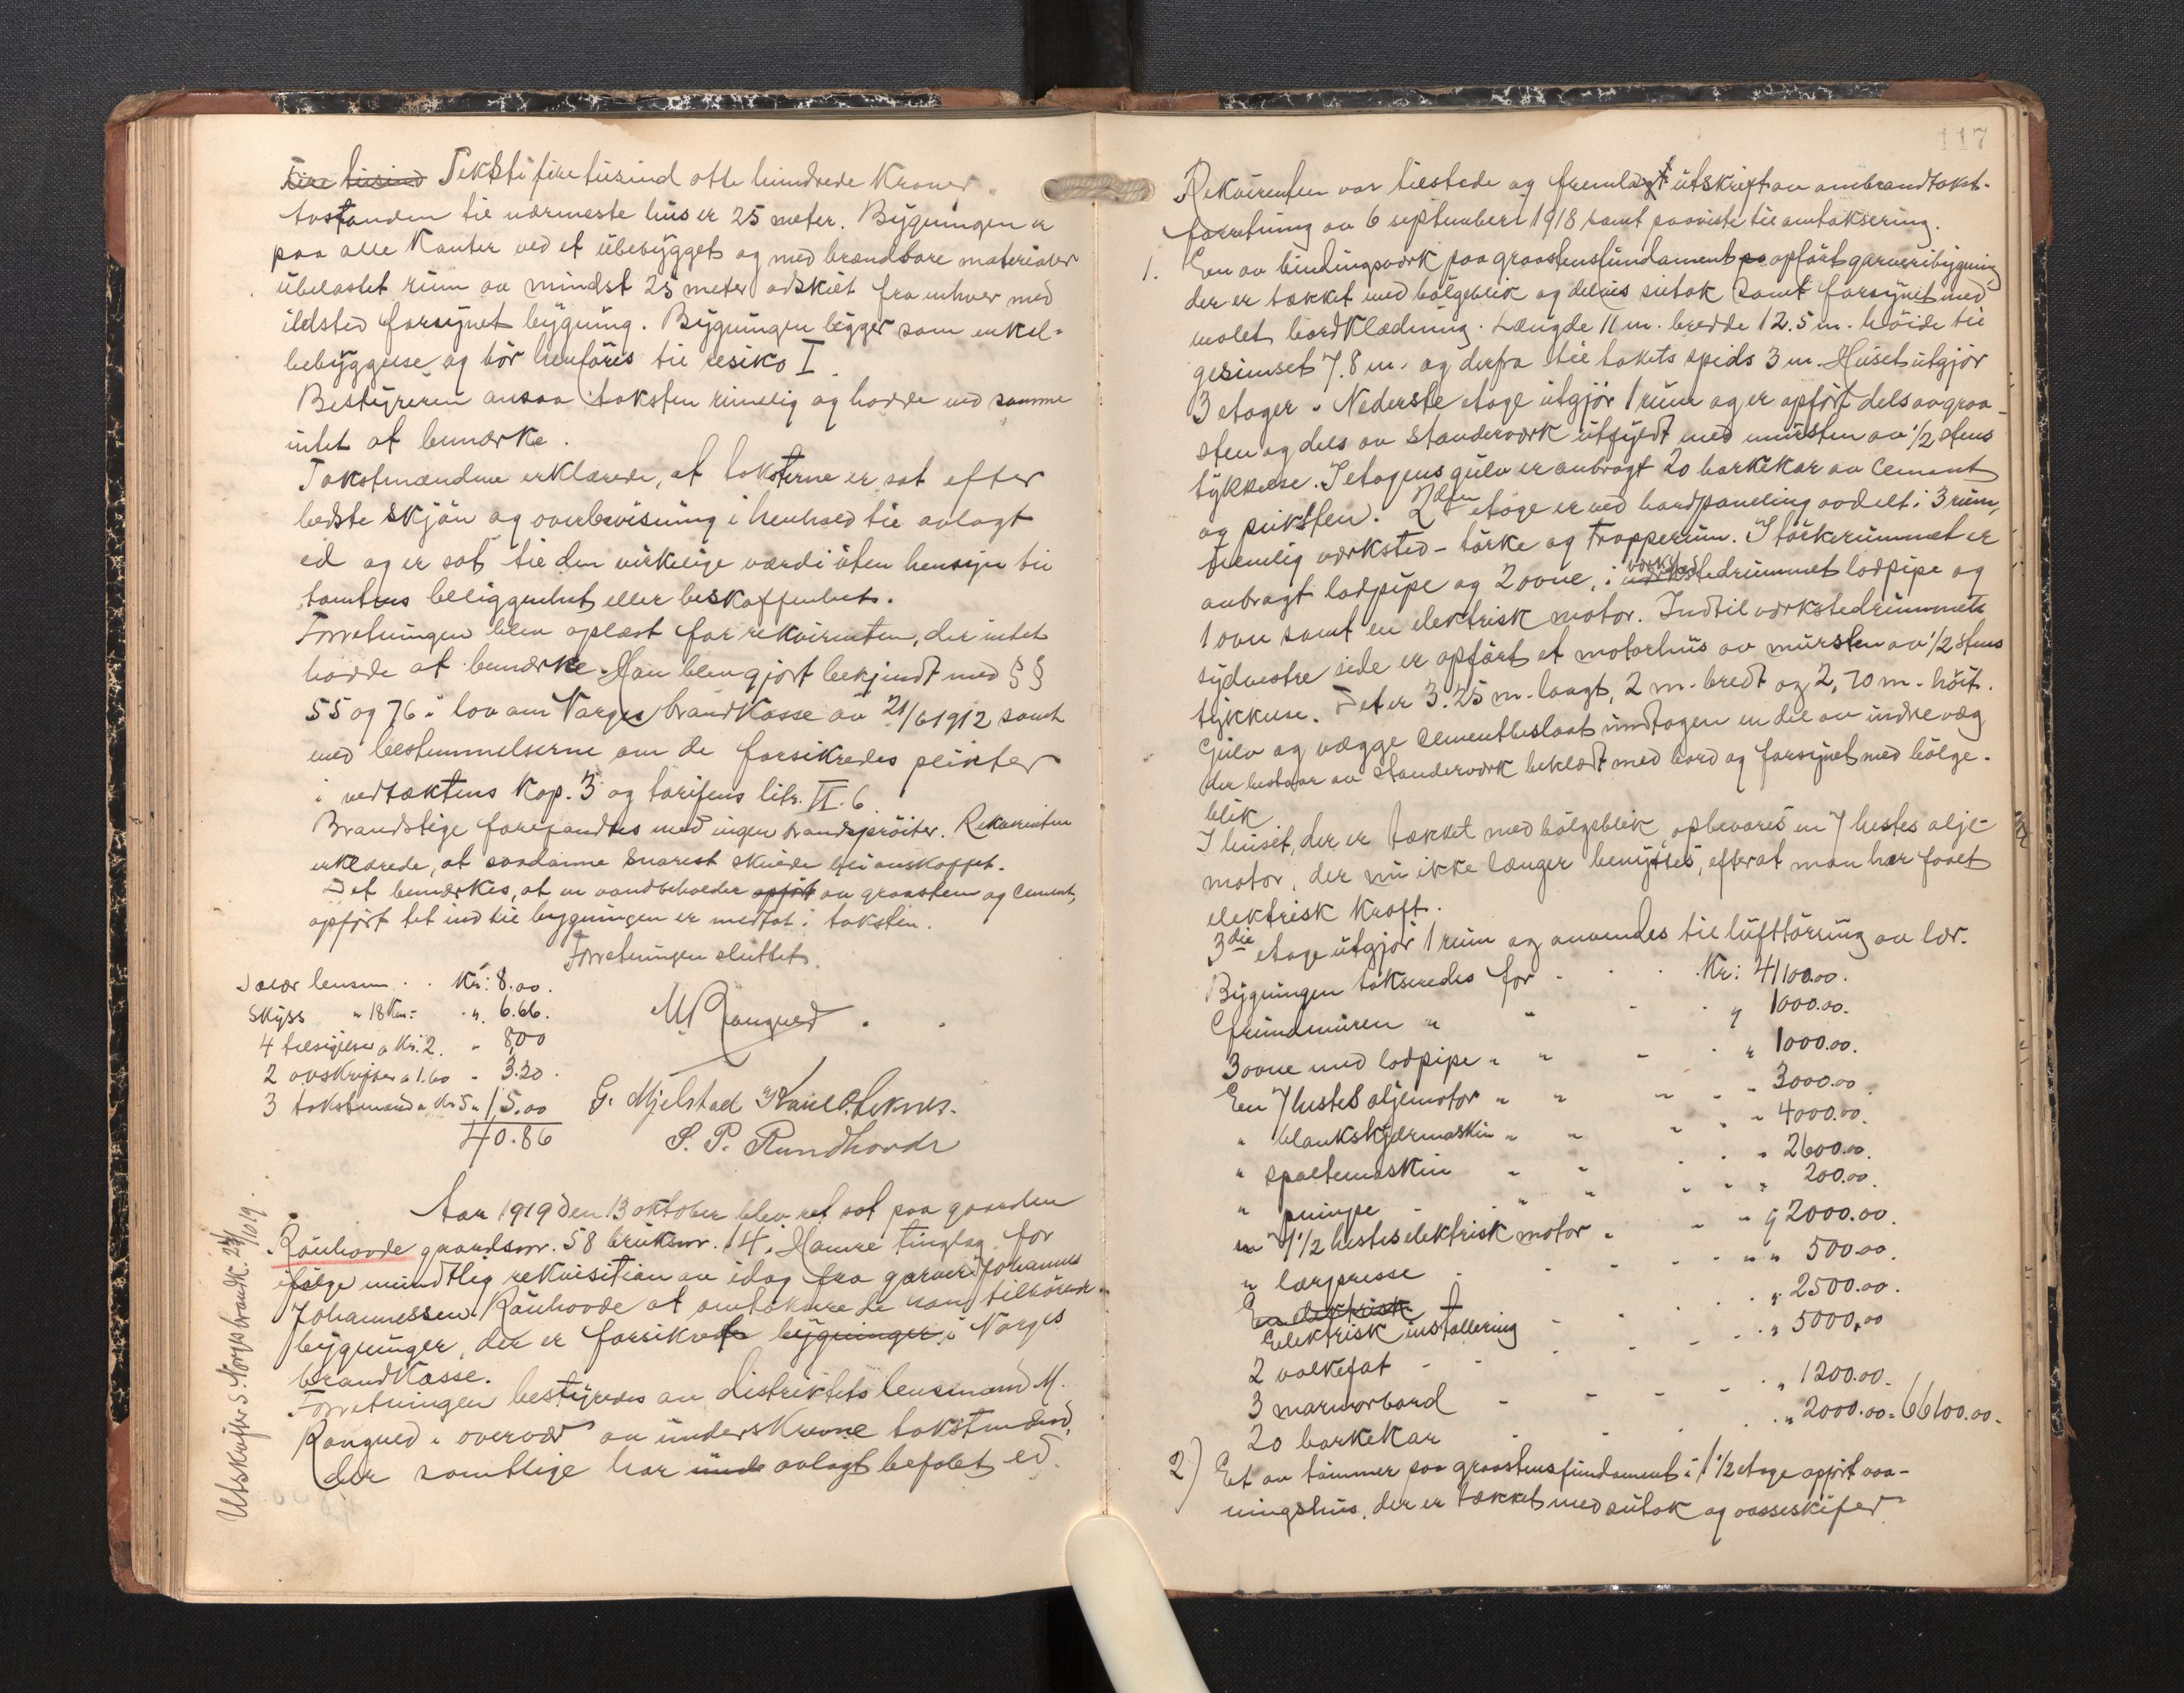 Fire tusind Seksti fire tusind otte hundrede Kroner.
Avstanden til nærmeste hus er 25 meter. Bygningen er
paa alle Kanter ved et ubebygget og med brændbare materialer
ubelastet rum av mindst 25 meter adskilt fra enhver med
ildsted forsynet bygning. Bygningen ligger som enkel-
bebyggelse og bör henföres til risiko I.
Bestyreren ansaa taksten rimelig og hadde ved samme
intet at bemærke.
Takstmændene erklærede, at taksterne er sat efter
bedste skjön og overbevisning i henhold til avlagt
ed og er sat til den virkelige værdi uten hensyn til
tomtens beliggenhet eller beskaffenhet.
Forretningen blev oplæst for rekvirenten, der intet
hadde at bemærke. Han blev gjort bekjendt med §§
55 og 76 i lov om Norges brandkasse av 21/6 1912 samt
med bestemmelserne om de forsikredes plikter
i vedtæktens Kap. 3 og tarifens litr. II. 6.
Brandstige forefandtes med ingen brandsprøiter. Rekvirenten
erklærede, at saadanne snarest skulde bli anskaffet.
Det bemærkes, at en vandbeholder opfört av graasten og cement,
opfört tet ind til bygningen er medtat i taksten.
Forretningen sluttet.
Salær lensm. . . Kr: 8.00.
Skyss " 18 Km = . ". 6.66.
4 tilsigelser a Kr. 2. " 8,00
2 avskrifter a 1.60 " 3.20.
3 takstmænd a Kr 5 " 15.00
40.86
M Rongved.
G. Mjelstad Karl O. Seknes.
S. P. Rundhovde
Aar 1919 den 13 oktober blev ret sat paa gaarden
Rauhovde gaardsnr. 58 bruksnr. 14 i Hamre tinglag for
ifølge mundtlig rekvisition av idag fra garver Johannes
Johannessen Rauhovde at omtaksere de ham tilhörende
bygninger, der er forsikrede bygninger i Norges
brandkasse.
Forretningen bestyredes av distriktets lensmand M.
Rongved i overvær av underskrevne takstmænd,
der samtlige har unde avlagt befalet ed.
Utskrifter s. Norges brandk. 24/10 19.
117
Rekvirenten var tilstede og fremlagt utskrift av ombrandtakst-
forretning av 6 september 1918 samt paaviste til omtaksering.
1. En av bindingsverk paa graastensfundament pa opfört garveribygning
der er tækket med bölgeblik og delvis sutak samt forsynet med
malet bordklædning. Længde 11 m. bredde 12.5 m. höide til
gesimset 7.8 m. og derfra til takets spids 3 m. Huset utgjör
3 etager. Nederste etage utgjör 1 rum og er opfört dels av graa-
sten og dels av standerværk utfyldt med mursten av 1/2 stens
tykkelse. I etagens gulv er anbragt 20 barkekar av cement
og pukksten. 2den etage er ved bordpaneling avdelt i 3 rum,
nemlig værksted - törke og trapperum. I törkerummet er
anbragt lodpipe og 2 ovne, i værkstedrummet lodpipe og
1 ovn samt en elektrisk motor. Indtil værkstedrummets
sydvestre side er opfört et motorhus av mursten av 1/2 stens
tykkelse. Det er 3.25 m. langt, 2 m. bredt og 2,70 m. höit.
Gulv og vægge cementbeslaat undtagen en del av indre væg
der bestaar av standerværk beklædt med bord og forsynet med bölge-
blik.
I huset, der er tækket med bölgeblik, opbevares en 7 hestes olje-
motor, der nu ikke længer benyttes, efterat man har faaet
elektrisk kraft.
3die etage utgjör 1 rum og anvendes til lufttörring av lær.
Bygningen takseredes for . . . Kr: 41100.00.
Grundmuren " " - . " 1000.00.
3 ovne med lodpipe " " - . " 1000.00.
En 7 hestes oljemotor " " - . " 3000.00
" blankskjærmaskin " " - . " 4000.00.
" spaltemaskin " " . . " 2600.00.
" pumpe . " " " " " 200.00.
en 7 1/2 hestes elektrisk motor " " - " 2000.00.
" lærpresse . . . . " " 500.00.
En elektrisk
Elektrisk installering . . . " 2500.00.
2 valkefat - - . - - . " 5000,00
3 marmorbord - - - - " 1200.00.
20 barkekar . . . " 2000.00 = 66100.00.
2) Et av tömmer paa graastensfundament i 1 1/2 etage opfört vaa-
ningshus, der er tækket med sutak og vosseskifer